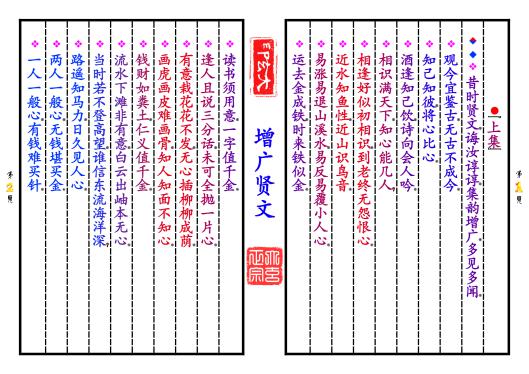 上集
昔时贤文，诲汝谆谆，集韵增广，多见多闻。
观今宜鉴古，无古不成今。
知己知彼，将心比心。
酒逢知己饮，诗向会人吟。
相识满天下，知心能几人。
相逢好似初相识，到老终无怨恨心。
近水知鱼性，近山识鸟音。
易涨易退山溪水，易反易覆小人心。
运去金成铁，时来铁似金。
增广贤文
读书须用意，一字值千金。
逢人且说三分话，未可全抛一片心。
有意栽花花不发，无心插柳柳成荫。
画虎画皮难画骨，知人知面不知心。
钱财如粪土，仁义值千金。
流水下滩非有意，白云出岫本无心。
当时若不登高望，谁信东流海洋深。
路遥知马力，日久见人心。
两人一般心，无钱堪买金，
一人一般心，有钱难买针。
第1页
第2页